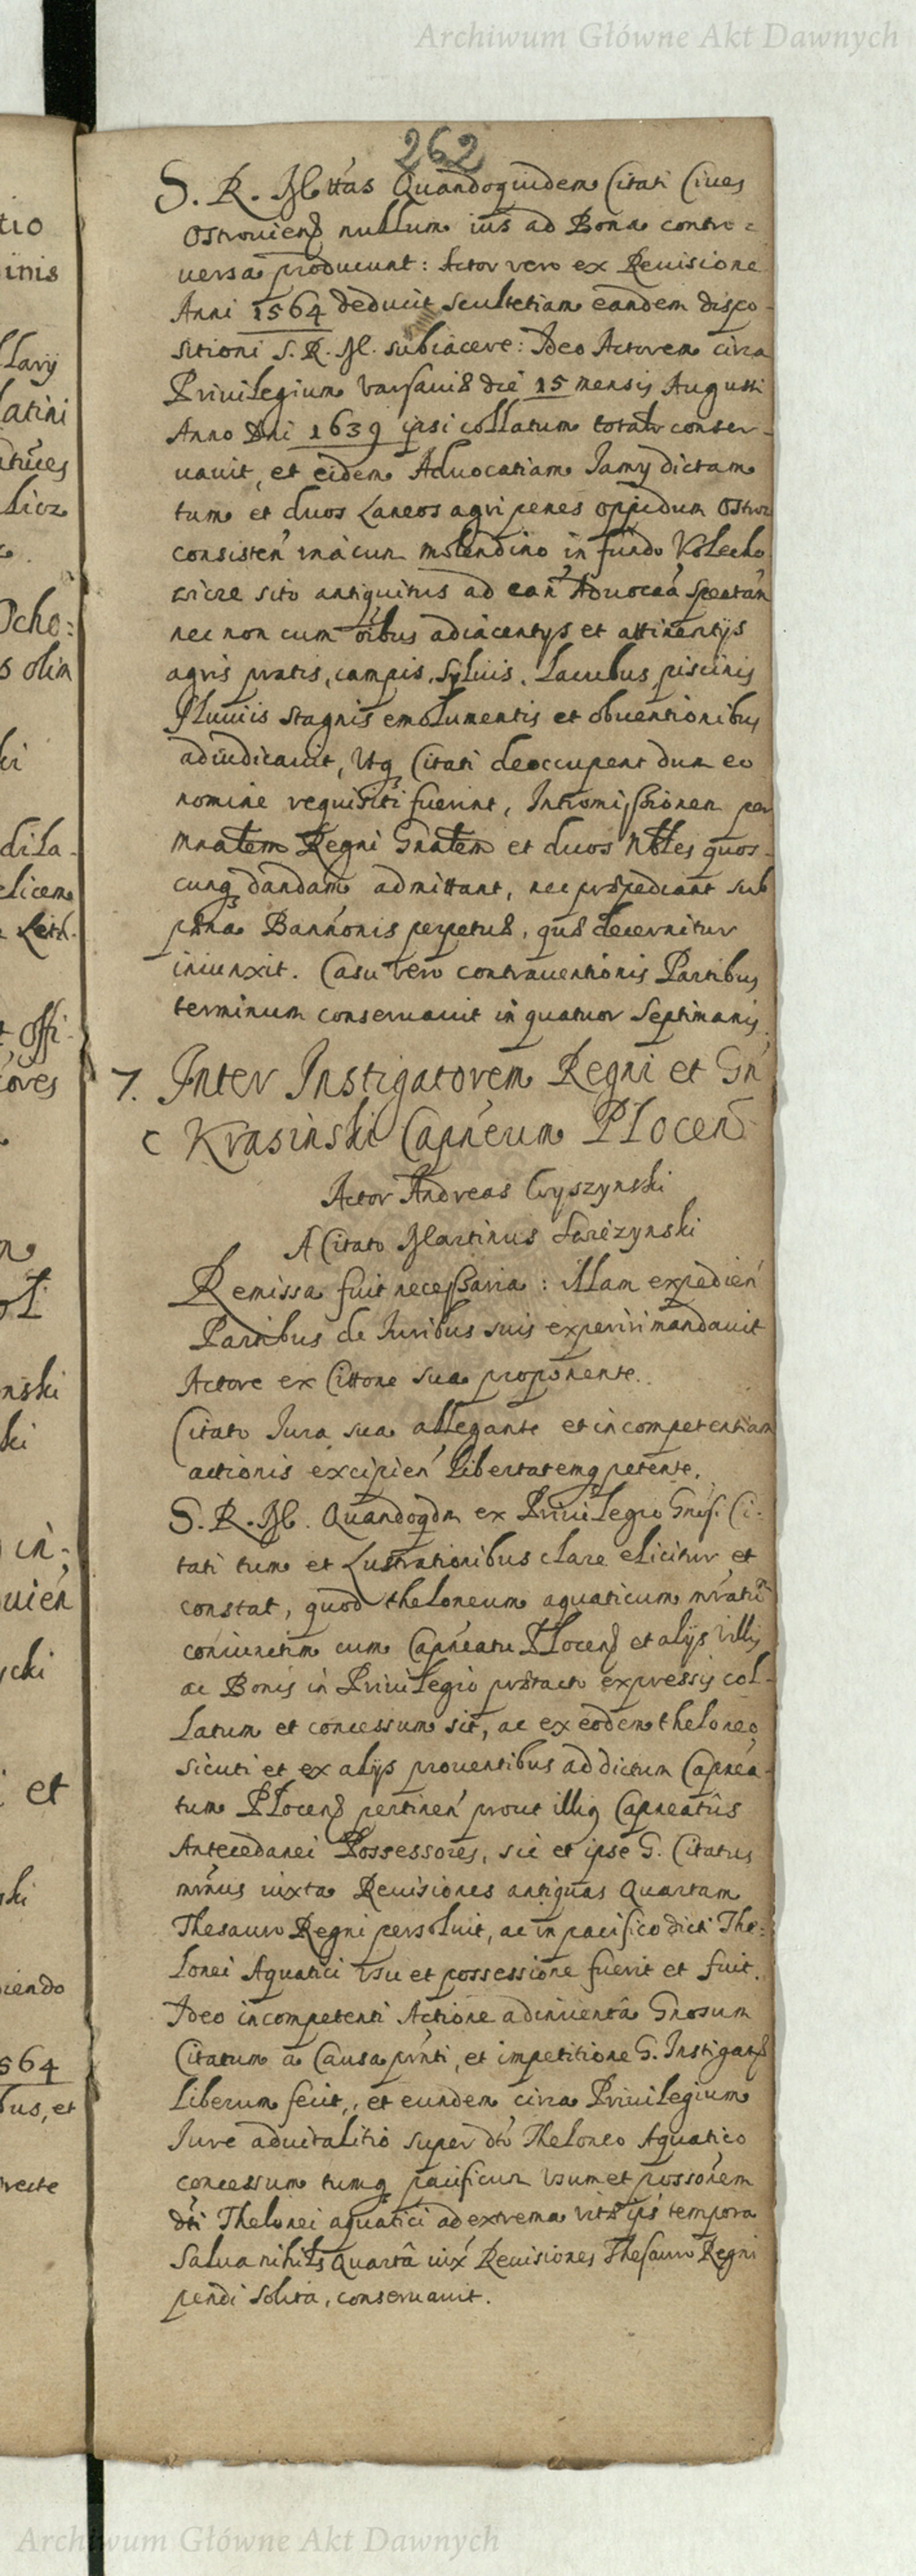 Archiwum Główne Akt Dawnych
262
S. R. Mttas Quandoquidem Citati Ciues
Ostrouien nullum ius ad Bona contro=
uersa producunt: Actor vero ex Reuisione
Anni 1564 deducit scultetiam eandem dispo-
sitioni S. R. M. subiacere: Ideo Actorem circa
Priuilegium Varsauiæ die 15 mensis Augusti
Anno Dni 1639 ipsi collatum totalr conser-
uauit, et eidem Aduocatiam Jamy dictam
tum et duos Laneos agri penes oppidum Ostro
consisten vnàcum molendino in fundo
sito antiquitus ad ean Aduocaá spectan
nec non cum oibus adiacentijs et attinentijs
agris pratis, campis, syluis, Lacubus piscinis
fluuiis stagnis emolumentis et obuentionibus
adiudicauit, Utq Citati deoccupent dum eo
nomine requisiti fuerint, Intromissionem per
Mnrałem Regni Gnałem et duos Nbłes quos-
cunq dandam admittant, nec præpediant sub
pæna Bannionis perpetuæ, quæ decernitur
iniunxit. Casu vero contrauentionis Partibus
terminum conseruauit in quatuor Septimanis
7. Inter Instigatorem Regni et Gn
C Krasinski Capneum Plocen
Actor Andreas Cryszynski
A Citato Martinus
Remissa fuit necessaria: illam expedien
Partibus de Iuribus suis experiri mandauit
Actore ex Cittone sua proponente.
Citato Iura sua allegante et incompetentiam
actionis excipien Libertatemq petente.
S. R. M. Quandoqdm ex Priuilegio Gnosi Ci-
tati tum et Lustrationibus clare elicitur et
constat, quod theloneum aquaticum
coniunctim cum Capneatu Plocen et alijs Villis
ac Bonis in Priuilegio prætacto expressis col-
latum et concessum sit, ac ex eodem theloneo
sicuti et ex alijs prouentibus ad dictum Capnea-
tum Plocen pertinen prout illiq Capneatûs
Antecedanei Possessores, sic et ipse G. Citatus
mrnus iuxta Reuisiones antiquas Quartam
Thesauro Regni persoluit, ac in pacifico dicti The=
lonei Aquatici vsu et possessione fuerit et fuit.
Ideo incompetenti Actione adinuentâ Gnosum
Citatum a Causa prnti, et impetitione G. Instigats
liberum fecit, et eundem circa Priuilegium
Iure aduitalitio super dto Theloneo Aquatico
concessum tumq pacificum vsum et possonem
dti Thelonei aquatici ad extrema vitæ ips tempora
Salua nihils Quartâ iux Reuisiones Thesauro Regni
pendi solita, conseruauit.
Archiwum Główne Akt Dawnych